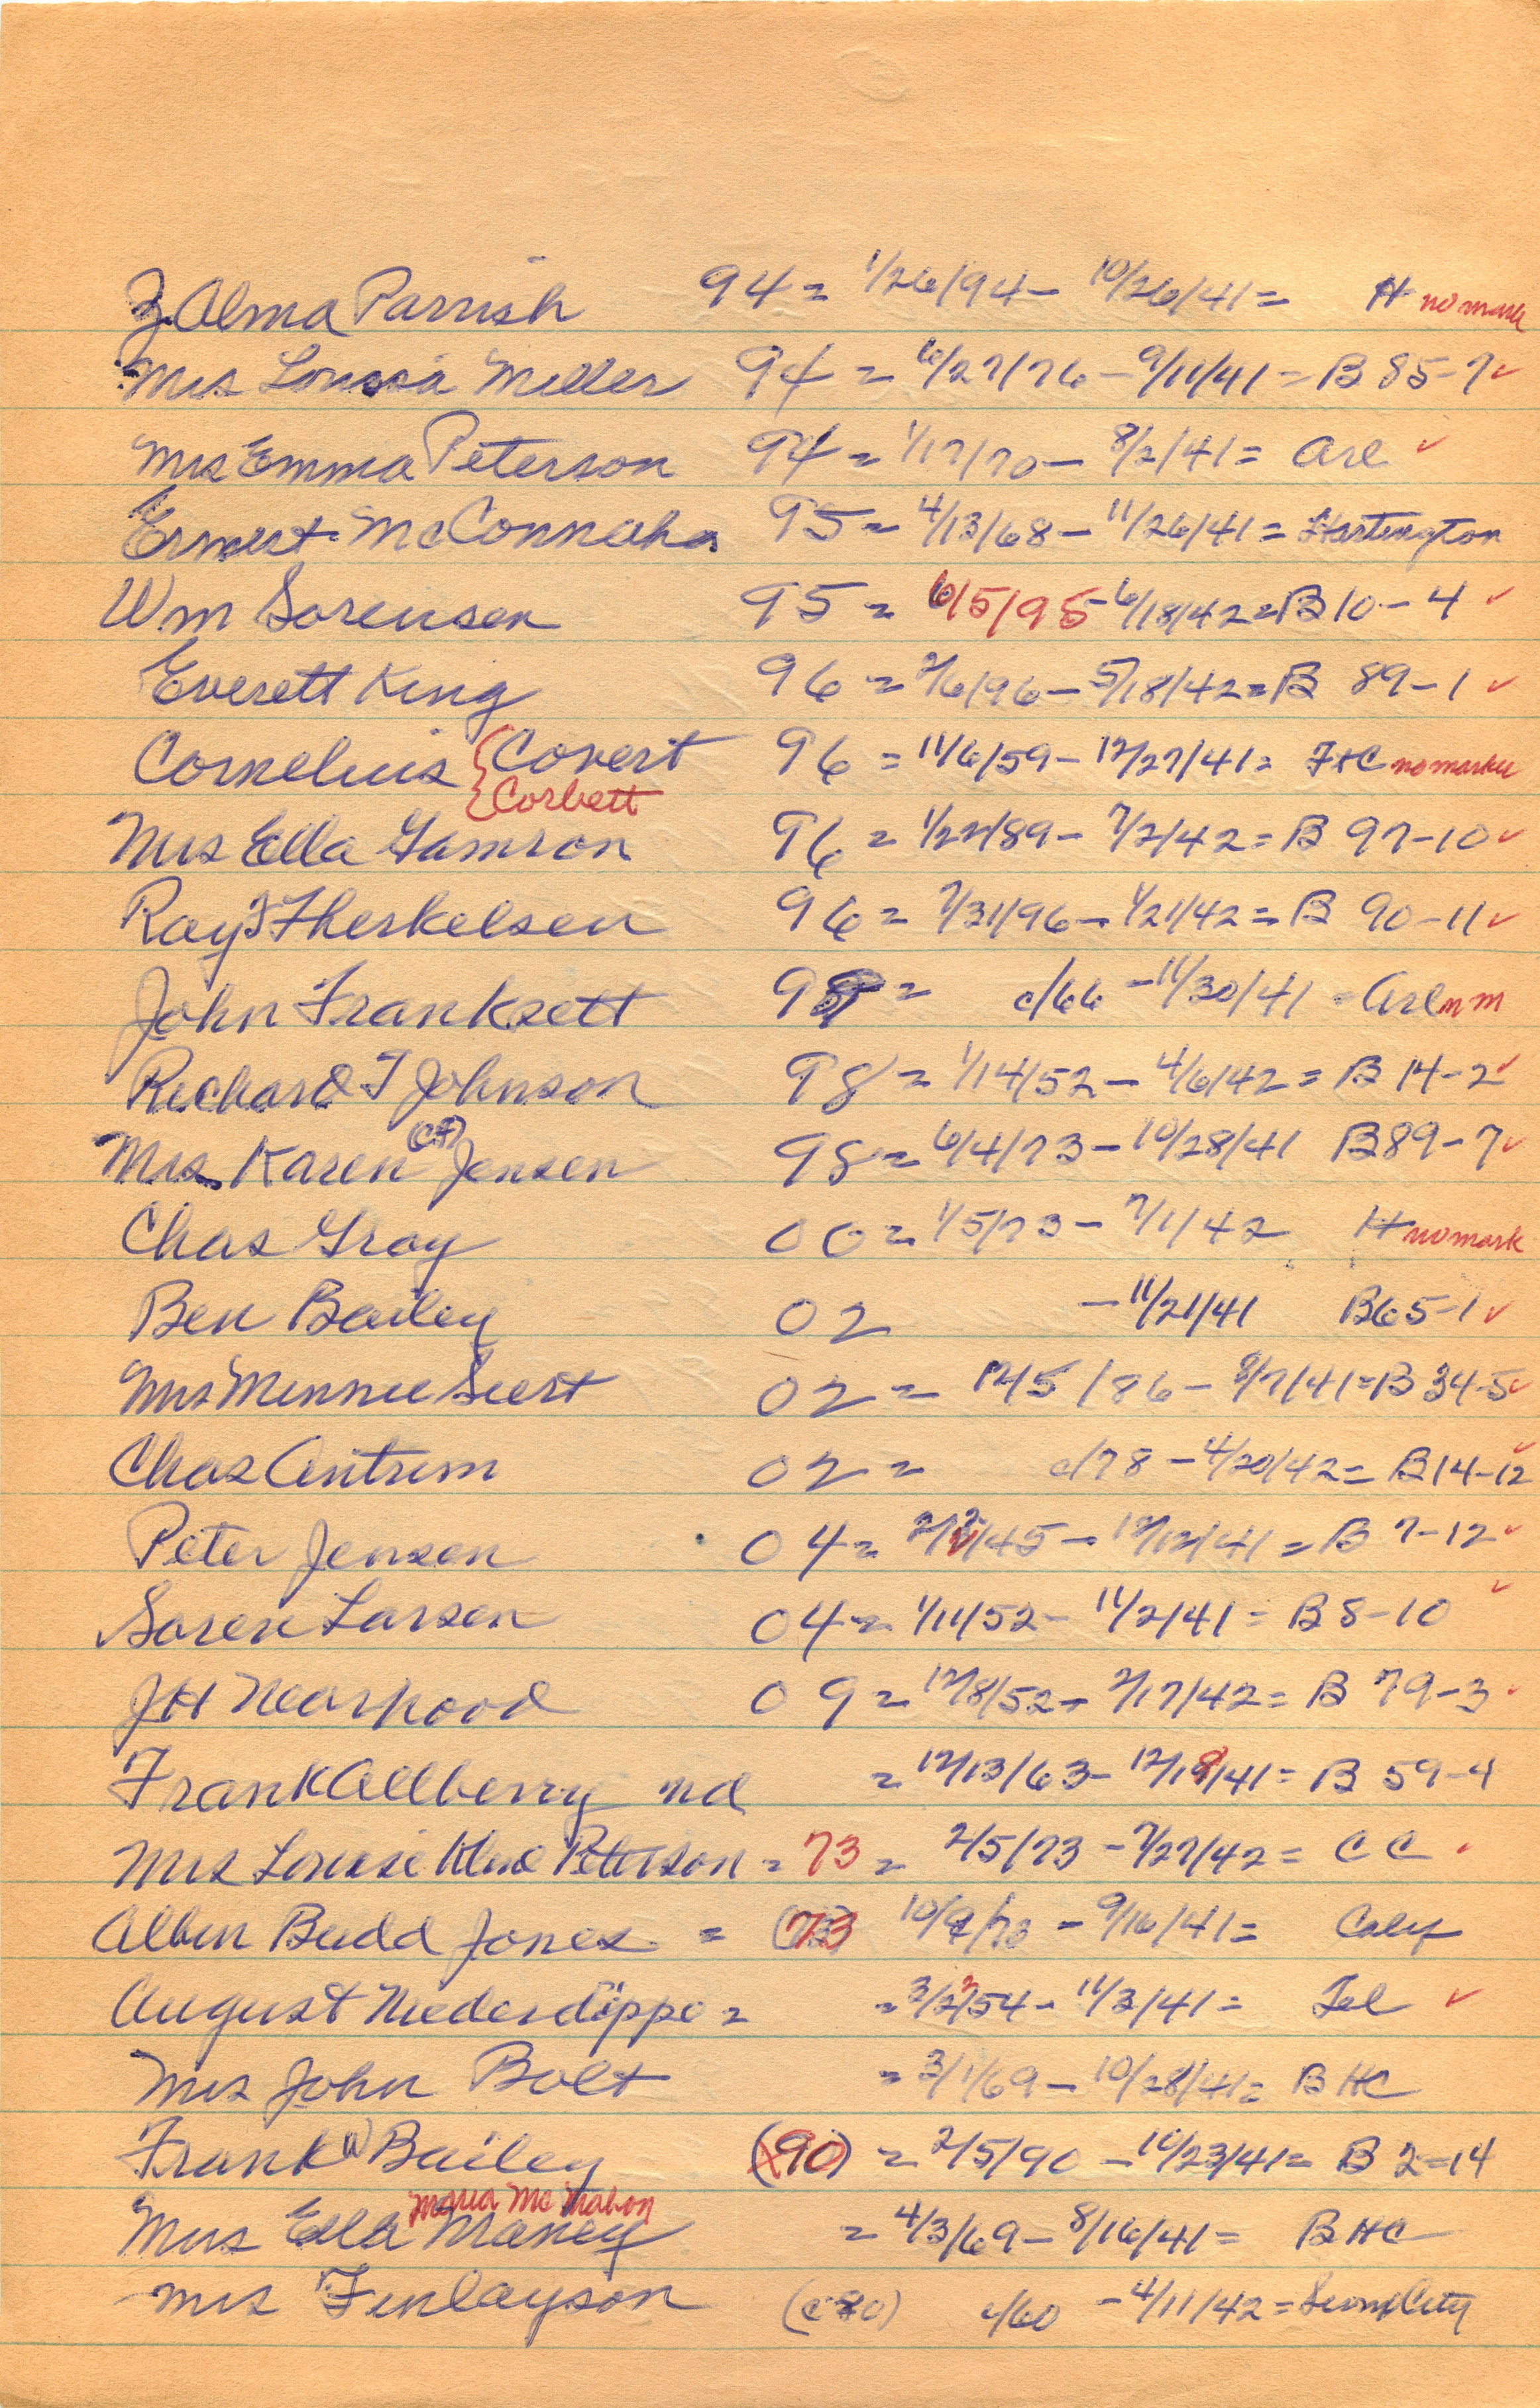 Z. Alma Parrish 94 = 1/26/94 - 10/26/41 = H no mark
Mrs Louisa Miller 94 = 6/27/76 - 9/11/41 = B 85-7 ✓
Mrs Emma Peterson 94 = 1/17/70 - 8/2/41 = Arl ✓
Ernest McConnaha 95 = 4/13/68 - 11/26/41 = Hartington
Wm Sorensen 95 = 6/5/95 - 6/18/42 = B 10-4 ✓
Everett King 96 = 2/6/96 - 5/18/42 = B 89-1 ✓
Cornelius { Covert 96 = 11/6/59 - 12/27/41 = FHC no marker
{ Corbett
Mrs Ella Gamron 96 = 1/22/89 - 7/2/42 = B 97-10 ✓
Ray J Therkelsen 96 = 7/31/96 - 1/21/42 = B 90-11 ✓
John Franksett 98 = c/66 - 11/30/41 = Arl n m
Richard T Johnson 98 = 1/14/52 - 4/6/42 = B 14-2 ✓
Mrs Karen (CF) Jensen 98 = 6/4/73 - 10/28/41 B 89-7 ✓
Chas Gray 00 = 1/5/73 - 7/1/42 H no mark
Ben Bailey 02 - 11/21/41 B 65-1 ✓
Mrs Minnie Siert 02 = /86 - 8/7/41 = B 34-5 ✓
Chas Antrim 02 = c/78 - 4/20/42 = B 14-12 ✓
Peter Jensen 04 = /45 - 12/12/41 = B 7-12 ✓
Soren Larsen 04 = 1/11/52 - 11/2/41 = B 8-10 ✓
JH Nearhood 09 = 12/8/52 - 2/17/42 = B 79-3 ✓
Frank Allberry nd = 12/13/63 - 12/18/41 = B 59-4
Mrs Louise Peterson = 73 = 2/5/73 - 7/27/42 = C C ✓
Albin Budd Jones = (73) 10/9/73 - 9/16/41 = Calif
August Niederdöppe = = 3/2/54 - 11/3/41 = Tel ✓
Mrs John Bolt = 3/1/69 - 10/28/41 = B HC
Frank W Bailey (90) = 2/5/90 - 10/23/41 = B 2-14
Maria McMahon
Mrs Ella Maney = 4/3/69 - 8/16/41 = B HC
Mrs Finlayson (c 80) c/60 - 4/11/42 = Sioux City